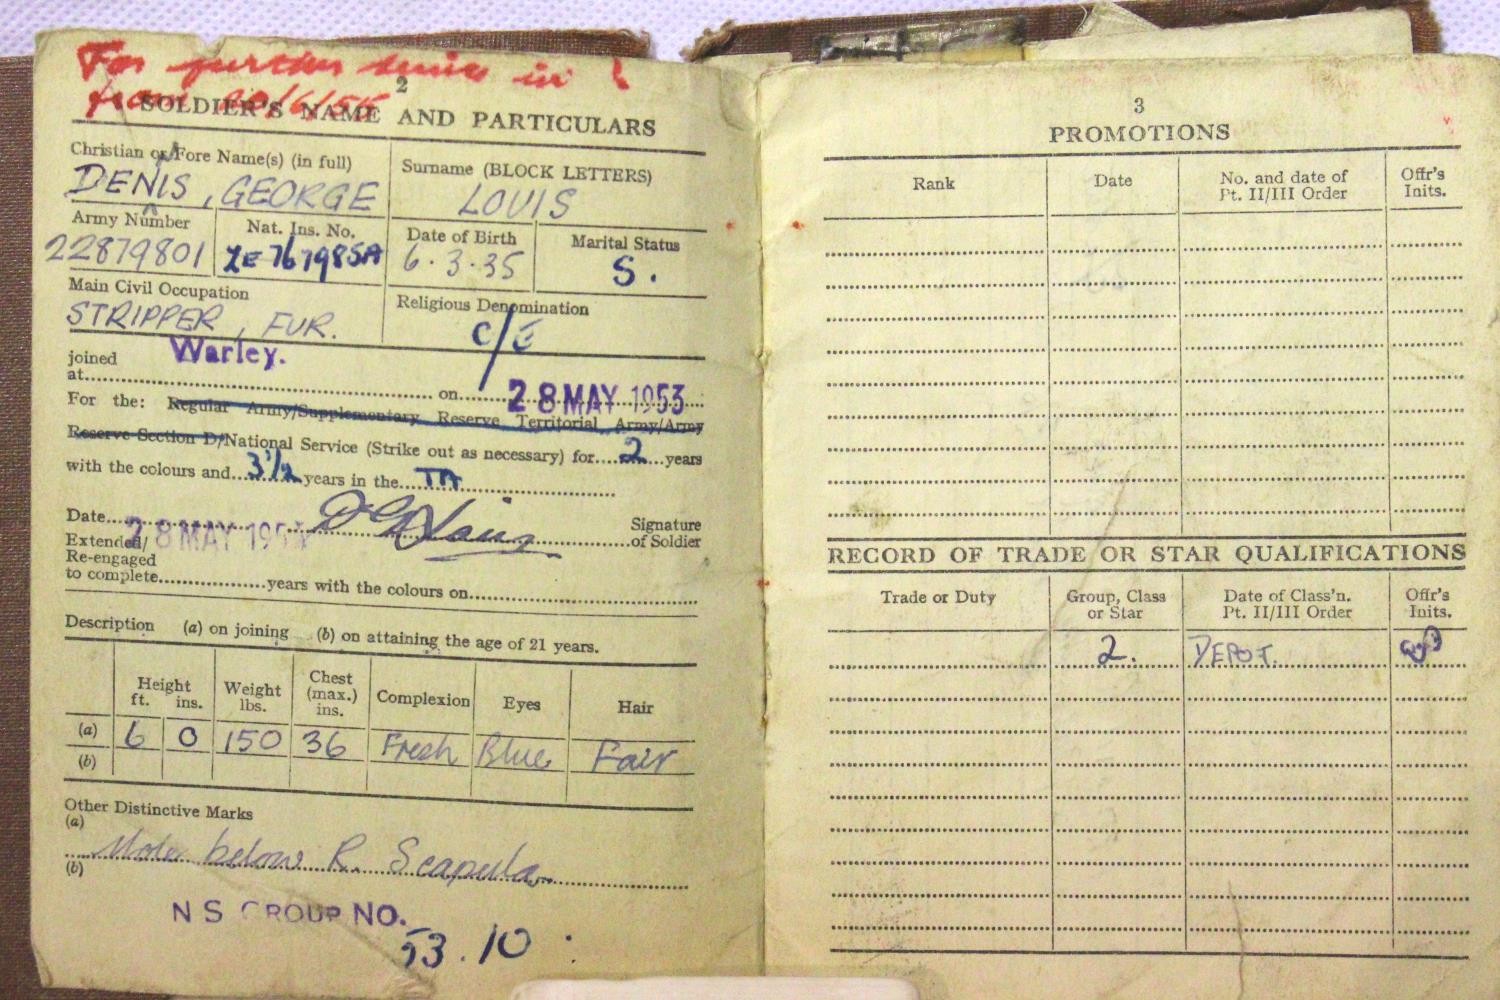 For further service in
from
2
SOLDIER'S NAME AND PARTICULARS
Christian or Fore Name(s) (in full)
DENNIS, GEORGE
Surname (BLOCK LETTERS)
LOUIS
Army Number
22879801
Nat. Ins. No.
ZE 767985A
Date of Birth
6.3.35
Marital Status
S.
Main Civil Occupation
STRIPPER, FUR.
Religious Denomination
C/E
joined
at Warley. on 28 MAY 1953
For the: Regular Army/Supplementary Reserve Territorial Army/Army
Reserve Section D/National Service (Strike out as necessary) for 2 years
with the colours and 3½ years in the TA
Date 28 MAY 1953 Signature
of Soldier
Extended/
Re-engaged
to complete years with the colours on
Description (a) on joining (b) on attaining the age of 21 years.
Height
ft. ins.
Weight
lbs.
Chest
(max.)
ins.
Complexion
Eyes
Hair
(a) 6 0 150 36 Fresh Blue Fair
(b)
Other Distinctive Marks
(a)
Mole below R. Scapula
(b)
N S GROUP NO.
53.10
3
PROMOTIONS
Rank
Date
No. and date of
Pt. II/III Order
Offr's
Inits.
RECORD OF TRADE OR STAR QUALIFICATIONS
Trade or Duty
Group, Class
or Star
Date of Class'n.
Pt. II/III Order
Offr's
Inits.
2. DEPOT.